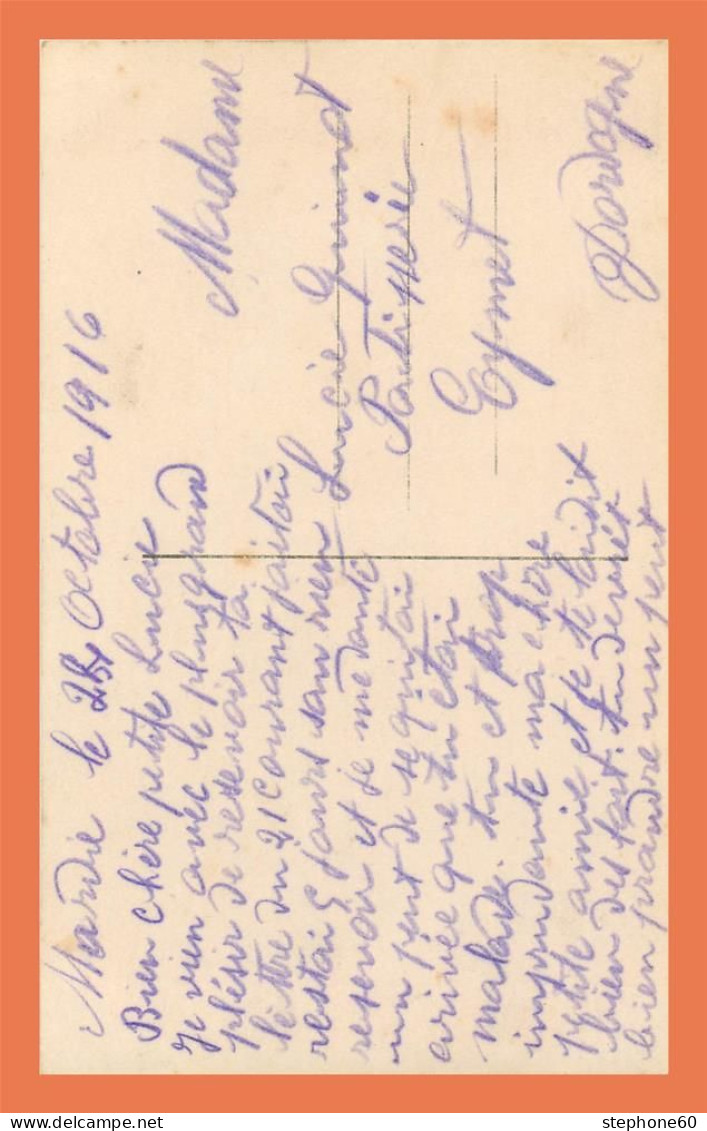 Mardie le 24 Octobre 1916
Bien chère petite Lucie
je vien avec le plus grand
plésir de resevoir ta
lettre du 21 courant jaitai
restai 5 jours san rien
resevoir et je me dantè
un peut de se qui tai
arivée que tu étai
malade. tu et trop
inprudante ma chère
petite amie et je te lindit
bien des fois. tu devrét
bien prandre un peut
Madame
Lucie Guinot
Patisserie
Eymet
Dordogne
stephone60